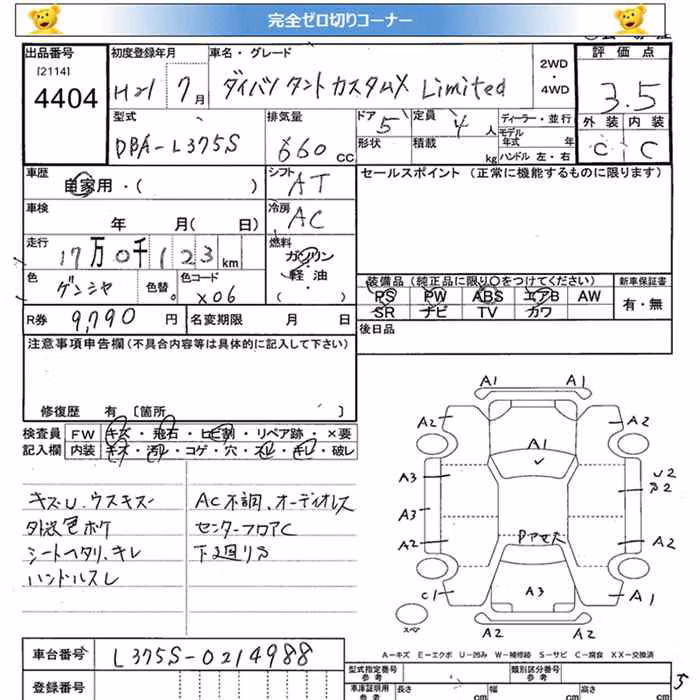 完全ゼロ切りコーナー
出品番号 初度登録年月 車名・グレード 2WD・4WD 評価点
[2114]
4404
H21 7月 ダイハツ タントカスタムX Limited 3.5
型式 排気量 ドア 定員 ディーラー・並行 外装 内装
DBA-L375S 660cc 5 4人 モデル年式 年 C C
形状 積載 kg ハンドル 左・右
車歴 自家用・( ) シフト AT セールスポイント (正常に機能するものに限ります)
車検 年 月( 日) 冷房 AC
走行 17万0千123km 燃料 ガソリン
軽・油
( )
色 ゲンシャ 色替。 色コード X06
装備品 (純正品に限り○をつけてください) 新車保証書
PS PW ABS エアB AW 有・無
SR ナビ TV カワ
R券 9,790円 名変期限 月 日 後日品
注意事項申告欄(不具合内容等は具体的に記入して下さい)
修復歴 有 〔箇所 〕
検査員 FW キズ・飛石・ヒビ割・リペア跡・×要
記入欄 内装 キズ・汚レ・コゲ・穴・スレ・キレ・破レ
キズU、ウスキズ AC不調、オーディオレス
外装色ボケ センターフロアC
シートヘタリ、キレ 下廻りS
ハンドルスレ
A1 A1
A2 A2
A1
A3 U2
A2
A3
A2 A2
C1 A3 A1
スペア
A2 A2
A-キズ E-エクボ U-凹み W-補修跡 S-サビ C-腐食 XX-交換済
車台番号 L375S-0214988 型式指定番号 参考 類別区分番号 参考
登録番号 車庫証明用 参考 長さ cm 幅 cm 高さ cm